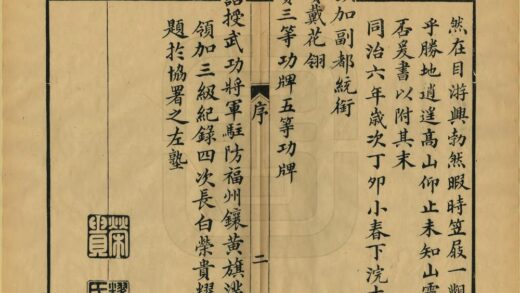 然在目游興勃然暇時笠屐一觀
乎勝地逍遥髙山仰止未知山靈
否爰書以附其末
同治六年歳次丁夘小春下浣
加副都統銜
戴花翎
三等功牌五等功牌
誥授武功將軍駐防福州鑲黄旗
領加三級紀錄四次長白榮貴
題於協署之左塾
序
二
榮貴